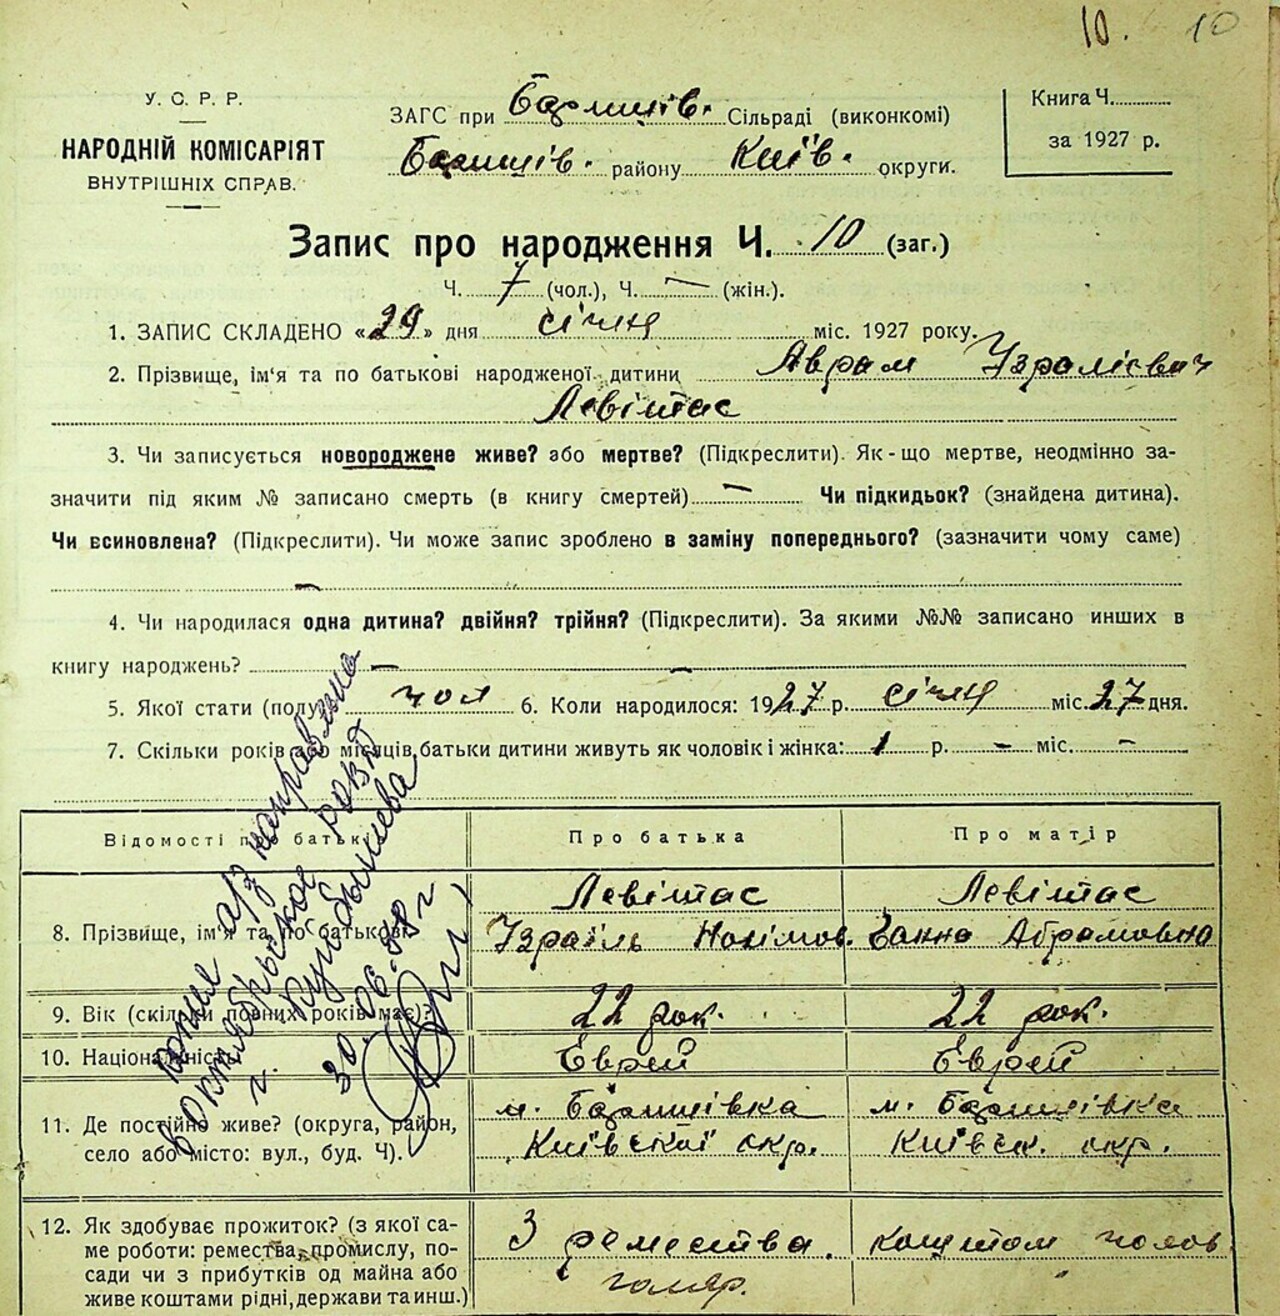 10. 10
У. С. Р. Р.
НАРОДНІЙ КОМІСАРІЯТ
ВНУТРІШНІХ СПРАВ.
ЗАГС при Баришів. Сільраді (виконкомі)
Баришів. району Київ. округи.
Книга Ч.
за 1927 р.
Запис про народження Ч. 10 (заг.)
Ч. 7 (чол.), Ч. — (жін.).
1. ЗАПИС СКЛАДЕНО «29» дня січня міс. 1927 року.
2. Прізвище, ім'я та по батькові народженої дитини Аврам Ізралієвич
Левітас
3. Чи записується новороджене живе? або мертве? (Підкреслити). Як-що мертве, неодмінно за-
значити під яким № записано смерть (в книгу смертей) — Чи підкидьок? (знайдена дитина).
Чи всиновлена? (Підкреслити). Чи може запис зроблено в заміну попереднього? (зазначити чому саме)
—
4. Чи народилася одна дитина? двійня? трійня? (Підкреслити). За якими №№ записано инших в
книгу народжень? — —
5. Якої стати (полу) чол 6. Коли народилося: 1927 р. січня міс. 27 дня.
7. Скільки років або місяців батьки дитини живуть як чоловік і жінка: 1 р. — міс. —
Відомості про батьків
Про батька
Про матір
8. Прізвище, ім'я та по батькові
Левітас
Ізраїль Нохімов.
Левітас
Ханна Абрамовна
9. Вік (скільки повних років має)?
22 рок.
22 рок.
10. Національність
Єврей
Єврей
11. Де постійно живе? (округа, район,
село або місто: вул., буд. Ч).
м. Баришівка
Київської окр.
м. Баришівка
Київськ. окр.
12. Як здобуває прожиток? (з якої са-
ме роботи: ремества, промислу, по-
сади чи з прибутків од майна або
живе коштами рідні, держави та инш.)
З ремества.
коштом чолов
Копия а/з направлена
в Октябрьское РОВД
г. Куйбышева
30.06.88 г